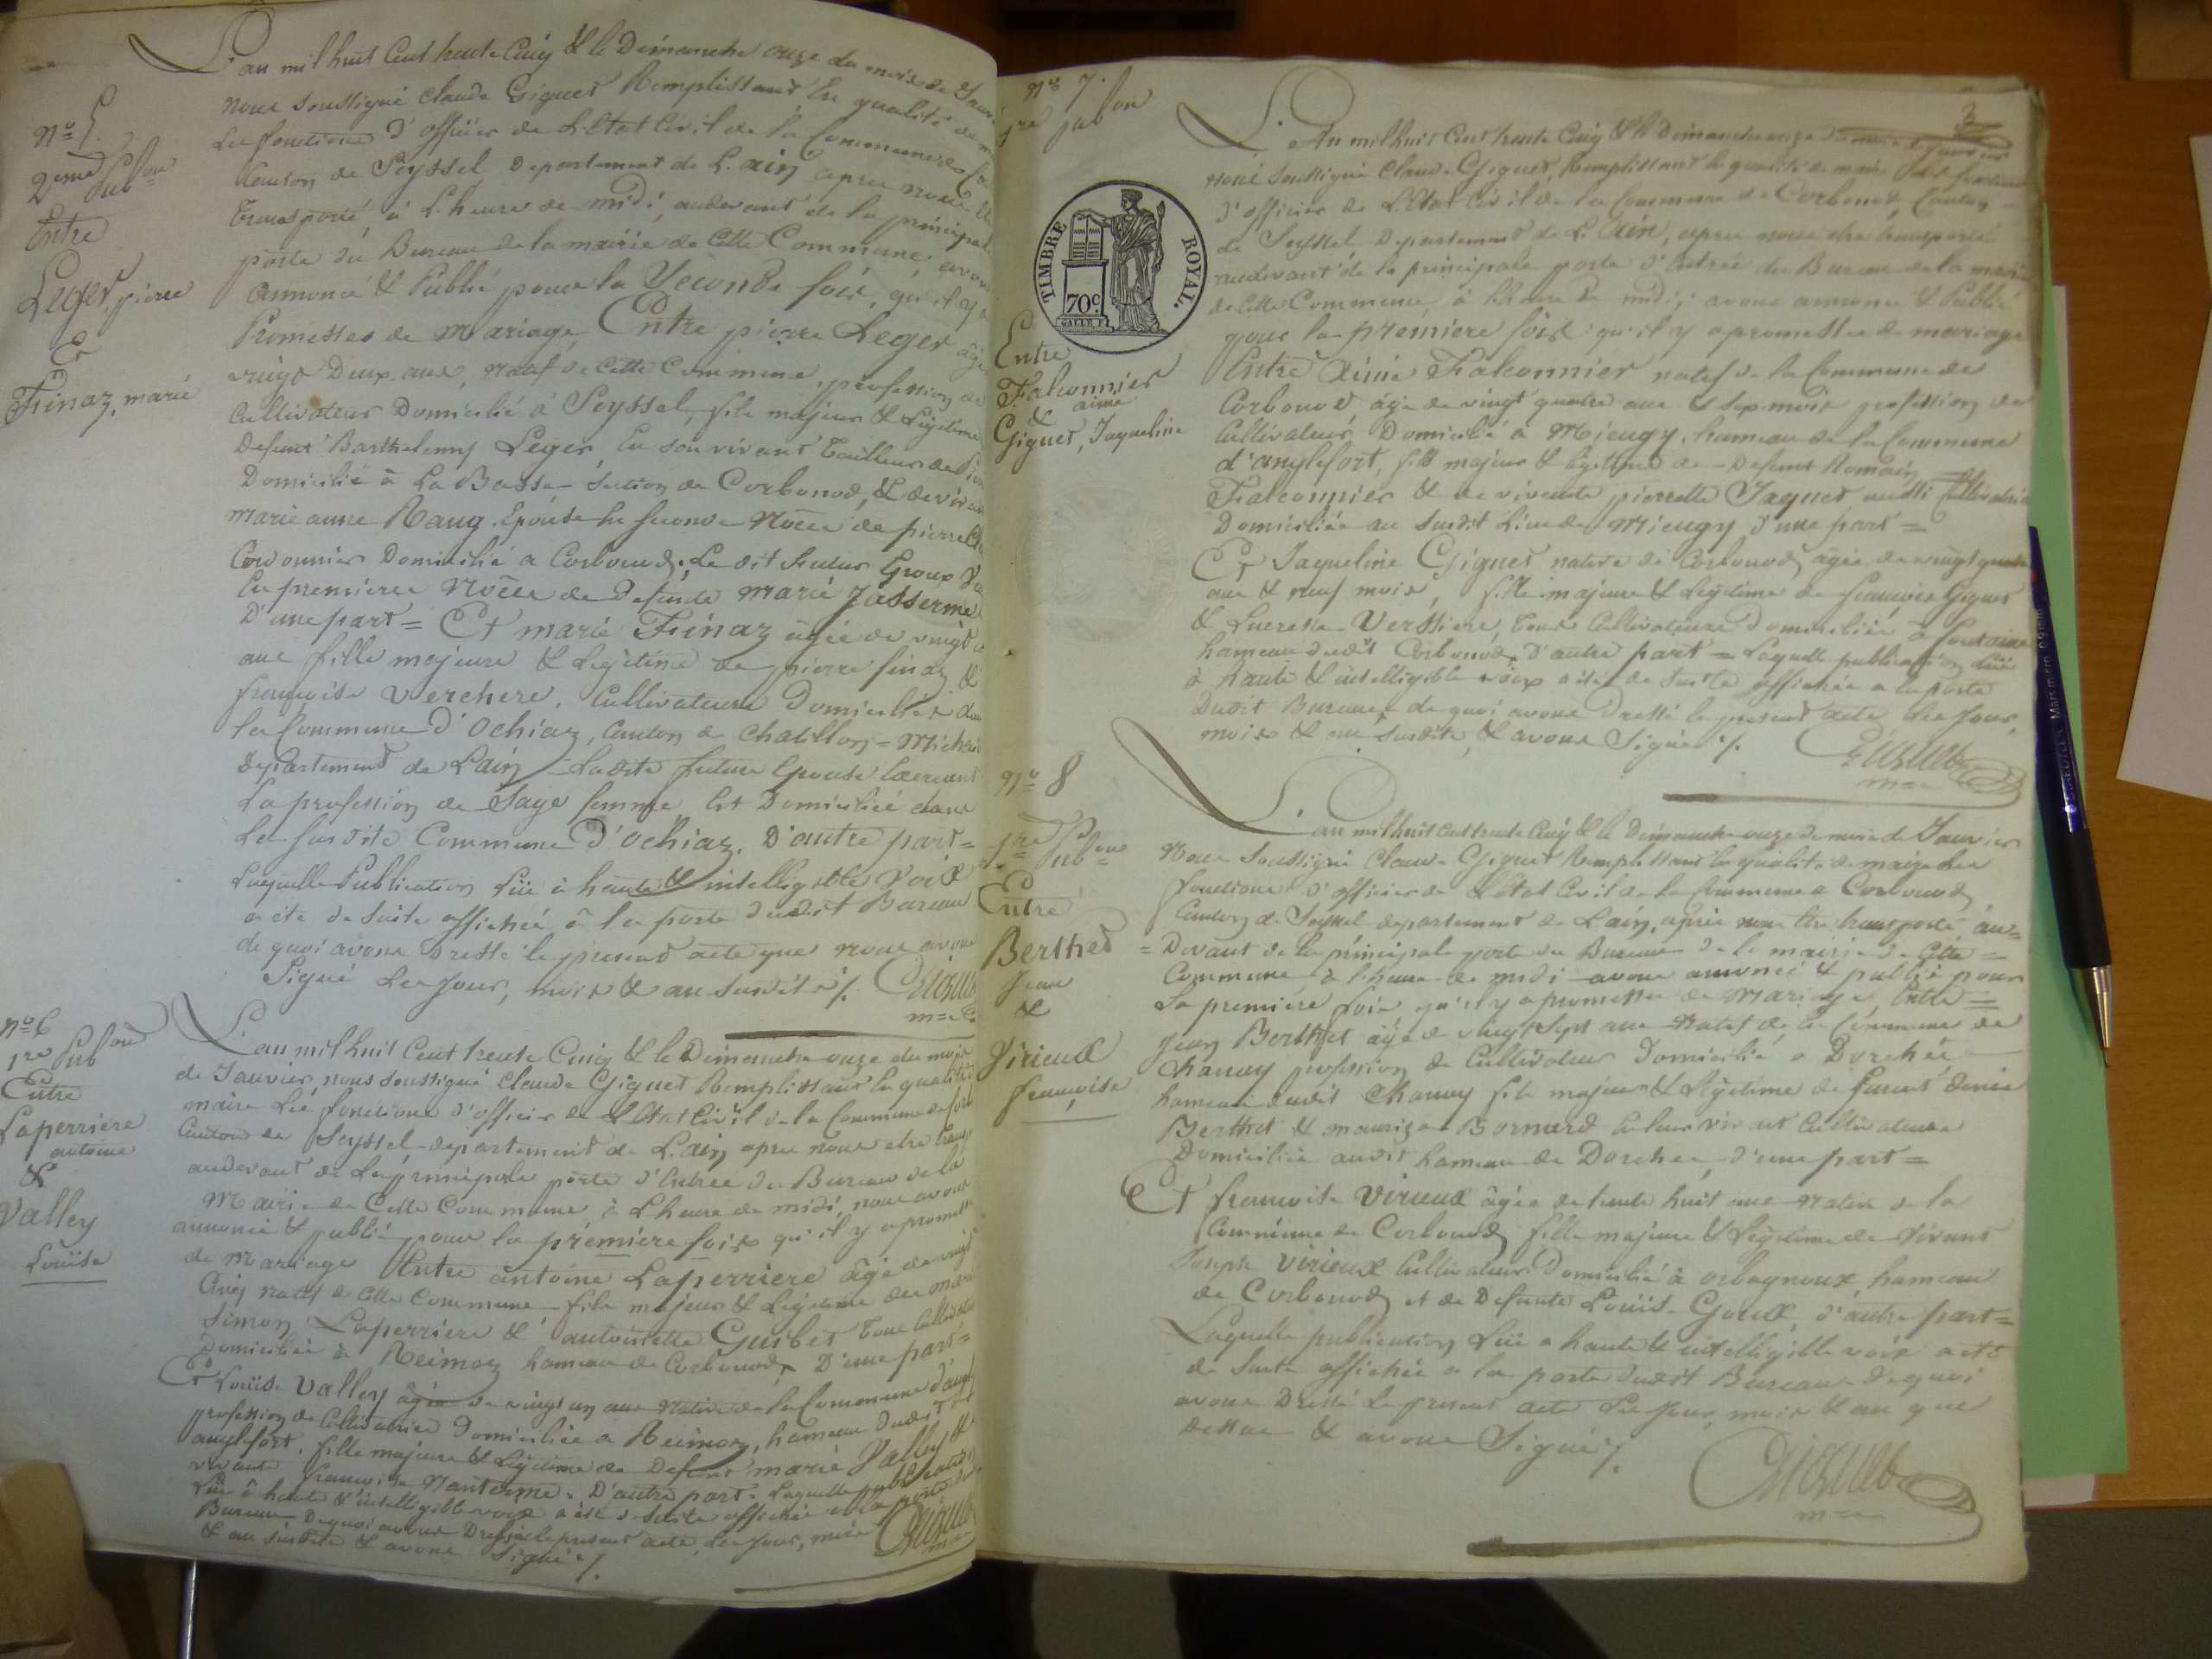 N° 5.
2eme Pubon
Entre
Leger, pierre
&
Finaz, marie
L'an mil huit Cent trente Cinq & le Dimanche onze du mois de Janv
nous soussigné Claude Giguet Remplissant En qualité de m
Les fonctions d'officier de L'Etat Civil de la Commune de Co
Canton de Seyssel, Departement de L'ain, apres nous
transporté à L'heure de midi, audevant de la principale
porte du Bureau de la mairie de Cette Commune, avons
annoncé & Publié pour la Seconde fois, qu'il y a
Promesses de Mariage, Entre pierre Leger âgé
vingt Deux ans, natif de Cette Commune, profession de
Cultivateur Domicilié à Seyssel, fils majeur & Légitime
Defunt Barthelemy Leger, En son vivant Tailleur de
Domicilié à La Basse Section de Corbonod, & de vivante
marie anne Ravy, Epouse En seconde Noces de pierre
Cordonnier Domicilié a Corbonod. Le dit Futur Epoux
En premieres Noces de Defunte Marie Jasserme
D'une part = Et marie Finaz agée de vingt
ans fille majeure & Légitime de pierre finaz &
françoise Verchere, Cultivateurs Domiciliés dans
la Commune d'Ochiaz, Canton de Chatillon = Michaille
Departement de L'ain Ladite future Epouse Exercant
La profession de Sage femme Est Domiciliée dans
La susdite Commune d'Ochiaz. D'autre part =
Laquelle Publication Lüe à haute & intelligible Voix
a été de suite affichée à la porte dudit Bureau
de quoi avons Dressé le present acte que nous avons
Signé Les Jour, mois & an susdits /. Giguet
m=e
N° 6
1re Pubon
Entre
Laperriere
antoine
&
Valley
Louise
L'an mil huit Cent trente Cinq & le Dimanche onze du mois
de Janvier, nous soussigné Claude Giguet Remplissant la qualité
maire Les fonctions d'officier de L'Etat Civil de la Commune de Corb
Canton de Seyssel, departement de L'ain apres nous etre transp
audevant de La principale porte d'Entrée du Bureau de la
Mairie de Cette Commune, à L'heure de midi, nous avons
annoncé & publié pour la première fois qu'il y a promesse
de Mariage Entre antoine Laperriere âgé de vingt
Cinq natif de Cette Commune fils majeur & Légitime de
Simon Laperriere & antoinette Guibet tous Cultivateurs
Domiciliés à Reimoz hameau de Corbonod, D'une part =
Et Louise Valley agée de vingt un ans native de la Commune d'angl
profession de Cultivatrice Domiciliée a Reimoz, hameau dudit
anglefort, fille majeure & Légitime de Defunt marie Valley &
vivante françoise Nanterme. D'autre part. Laquelle publication
Lüe à haute & intelligible voix a été de suite affichée a la porte dudit
Bureau Dequoi avons Dressé le present acte, Les Jour, mois
& an susdits & avons Signé /.
Giguet
m=e
3
N° 7.
1re pubon
TIMBRE ROYAL.
70c.
Entre
Falconnier
aimé
&
Giguet, Jaqueline
L'An mil huit Cent trente Cinq & le Dimanche onze du mois de Janvier
nous soussigné Claude Giguet, Remplissant la qualité de maire Les fonctions
d'officier de L'Etat Civil de la Commune de Corbonod, Canton
de Seyssel Departement de L'Ain, apres nous etre transporté
audevant de la principale porte d'Entrée du Bureau de la mairie
de Cette Commune, à L'heure de midi, avons annoncé & Publié
pour la première fois qu'il y a promesses de mariage
Entre Aimé Falconnier natif de la Commune de
Corbonod, âgé de vingt quatre ans & sept mois profession de
Cultivateur Domicilié à Mieugy, hameau de la Commune
d'anglefort, fils majeur & Légitime de Defunt Romain
Falconnier & de vivante pierrette Jaquet, aussi Cultivatrice
Domiciliée au susdit Lieu de Mieugy d'une part =
Et Jaqueline Giguet native de Corbonod, agée de vingt quatre
ans & neuf mois, fille majeure & Légitime de francois Giguet
& Lucresse Verssiere, tous Cultivateurs Domiciliés à
hameau dudit Corbonod, D'autre part = Laquelle publication Lüe
à haute & intelligible voix a été de suite affichée a la porte
Dudit Bureau, de quoi avons Dressé le present acte Les Jour,
mois & an susdits, & avons Signé /. Giguet
m=e
N° 8
1re Pubon
Entre
Berthet
Jean
&
Virieux
françoise
L'an mil huit Cent trente Cinq & le Dimanche onze du mois de Janvier
Nous Soussigné Claude Giguet Remplissant la qualité de maire Les
fonctions d'officier de L'Etat Civil de la Commune de Corbonod
Canton de Seyssel departement de L'ain, après nous être transporté au=
= Devant de la principale porte du Bureau de la mairie de Cette =
Commune à l'heure de midi avons annoncé & publié pour
La première fois, qu'il y a promesses de Mariage, Entre =
Jean Berthet âgé de vingt sept ans natif de la Commune de
Chanay profession de Cultivateur Domicilié a Dorches
hameau dudit Chanay fils majeur & Légitime de furent
Berthet & Bornard en leur vivant Cultivateurs
Domiciliés audit hameau de Dorches, d'une part =
Et françoise Virieux âgée de trente huit ans native de la
Commune de Corbonod, fille majeure & Légitime de vivant
Joseph Virieux Cultivateur Domicilié à orbagnoux, hameau
de Corbonod, et de Defunte Louise Goux, d'autre part =
Laquelle publication Lüe a haute & intelligible voix a été
de Suite affichée a la porte dudit Bureau Dequoi
avons Dressé Le present acte Les Jour, mois & an que
dessus & avons Signé /.
Giguet
m=e